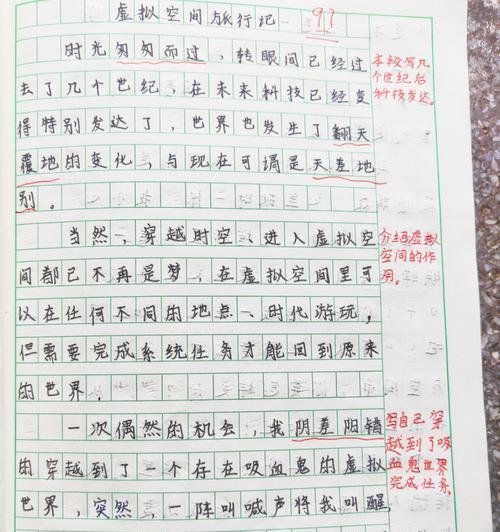 虚拟空间旅行记 97
时光匆匆而过，转眼间已经过
去了几个世纪，在未来科技已经变
得特别发达了，世界也发生了翻天
覆地的变化，与现在可谓是天差地
别。
本段写几
个世纪后
科技发达。
当然，穿越时空、进入虚拟空
间都已不再是梦，在虚拟空间里可
以在任何不同的地点、时代游玩，
但需要完成系统任务才能回到原来
的世界。
介绍虚拟
空间的作
用。
一次偶然的机会，我阴差阳错
的穿越到了一个存在吸血鬼的虚拟
世界，突然，一阵叫喊声将我叫醒，
写自己穿
越到了吸
血鬼世界
完成任务。